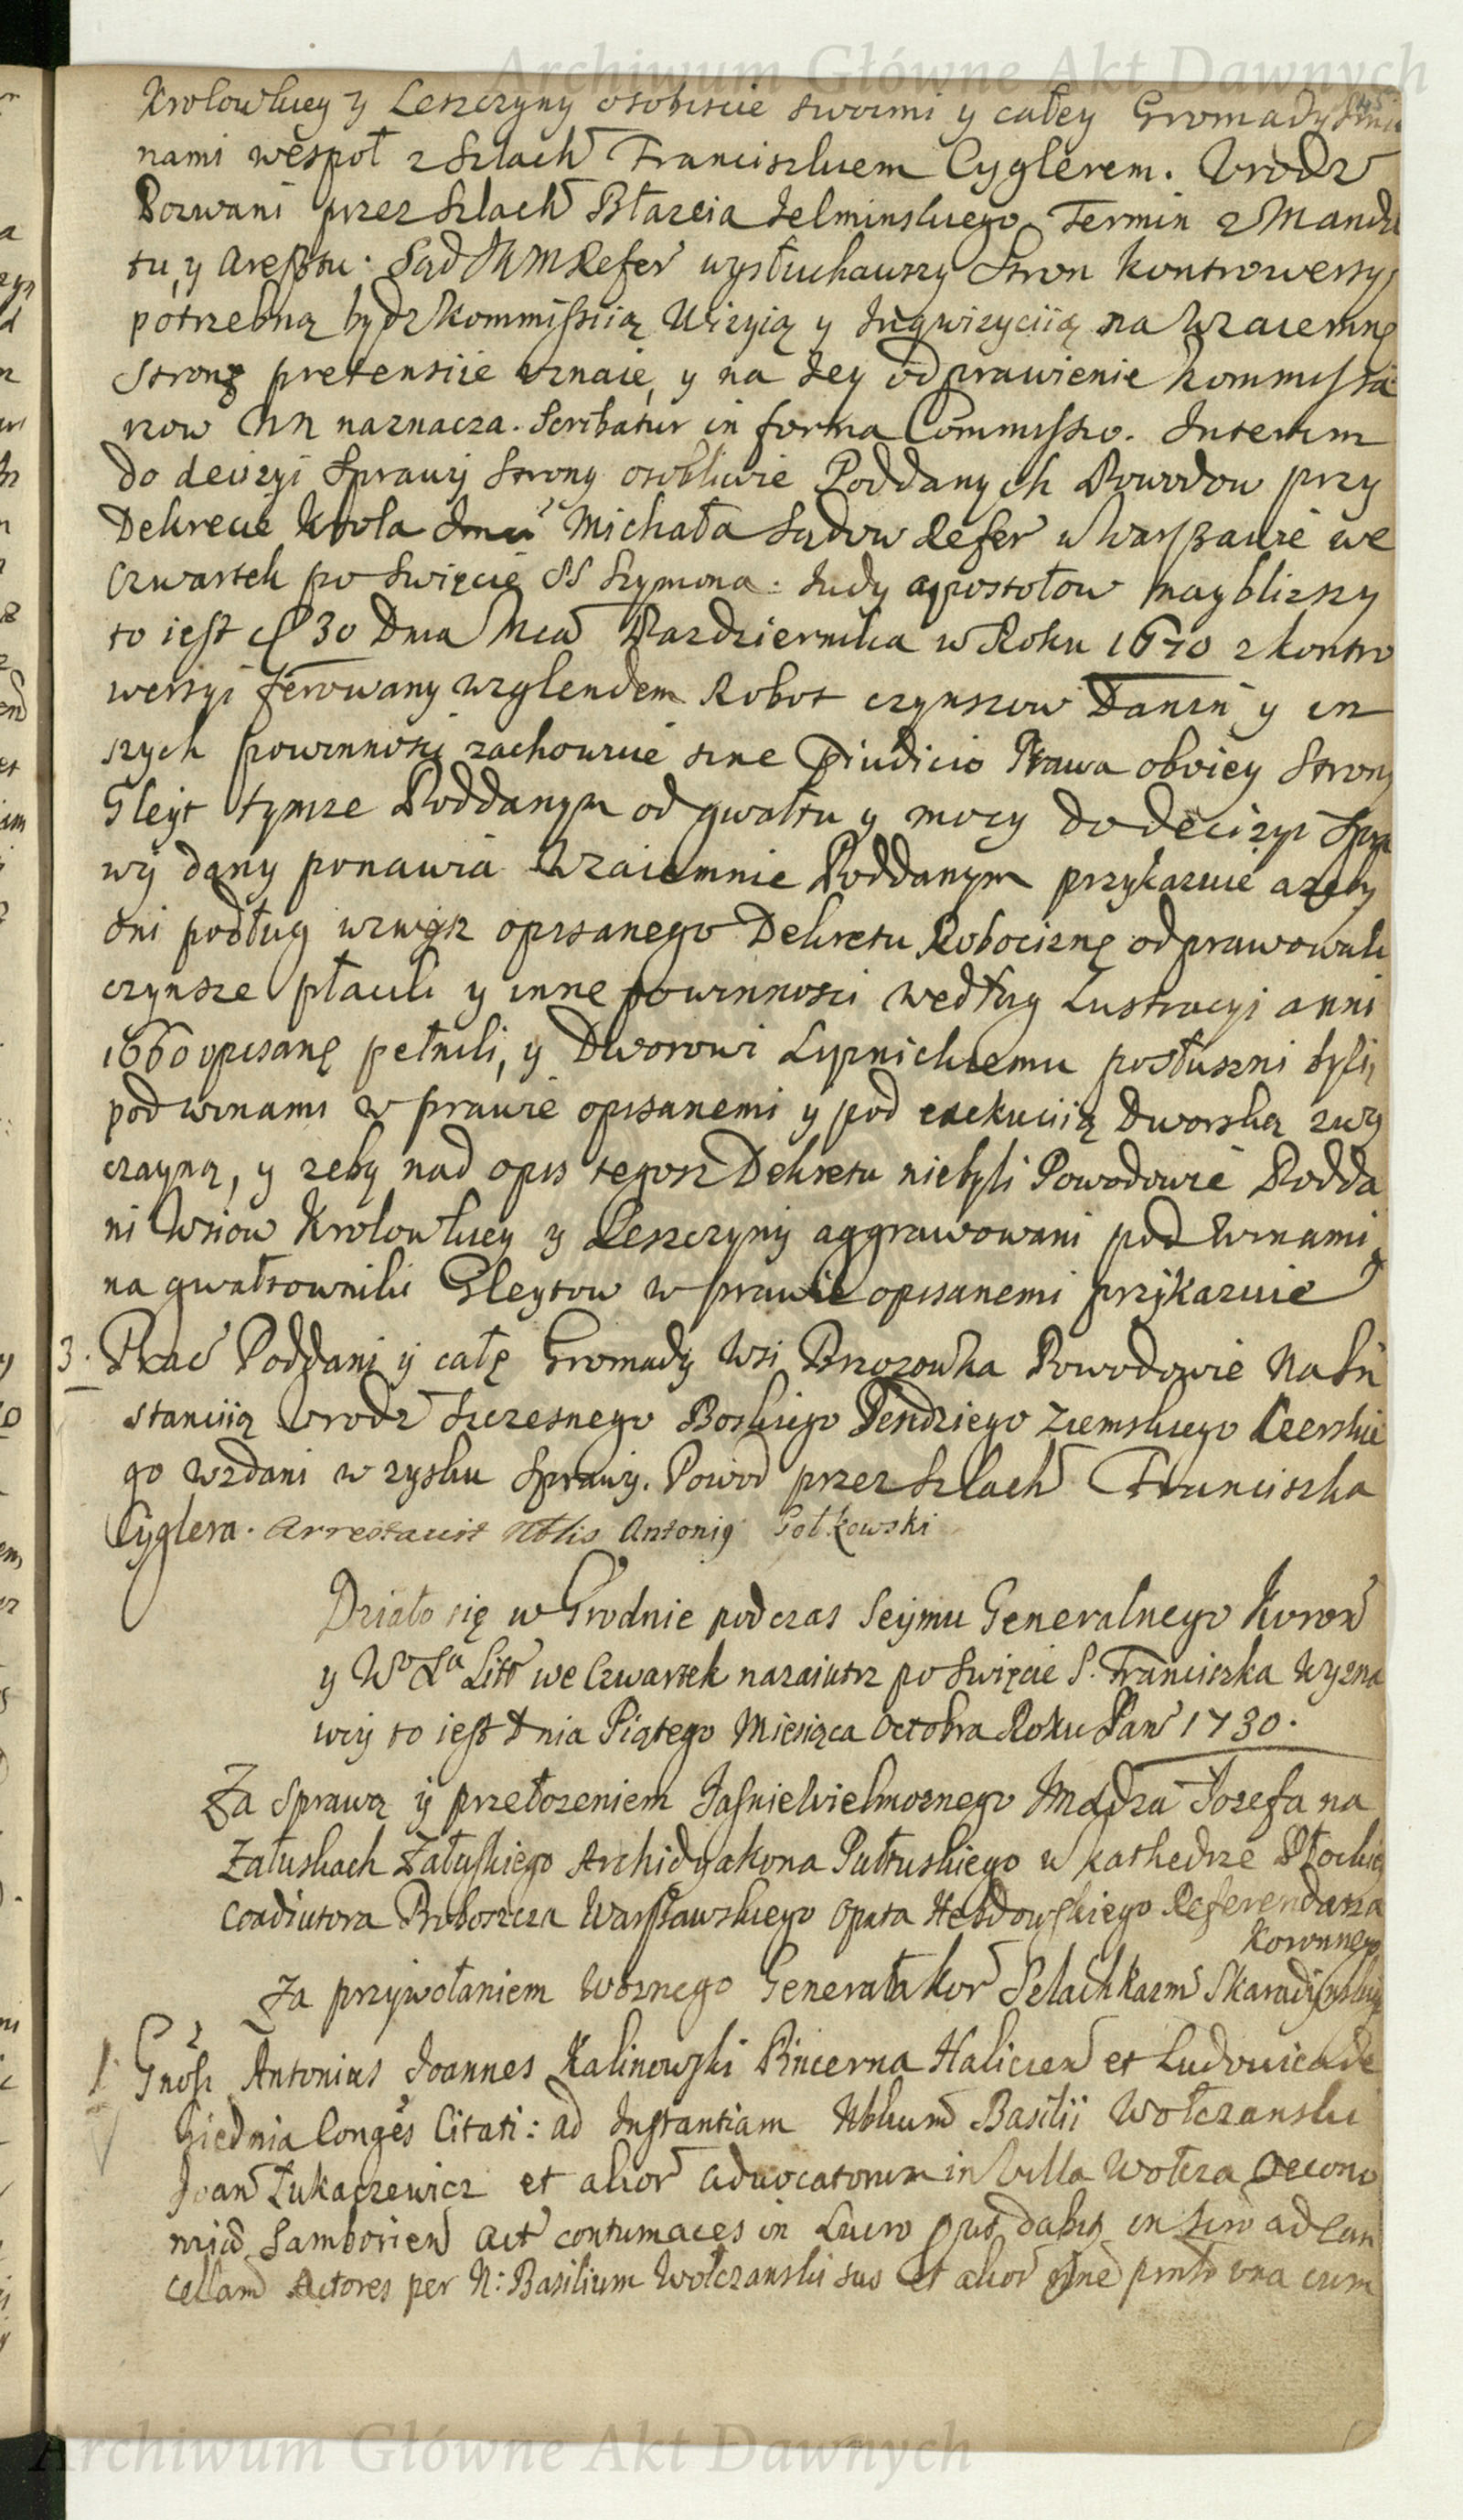 Archiwum Główne Akt Dawnych
Krolowluey y Leszczyny osobiscie swoimi y całey Gromady Imie
nami wespoł z Szlach Franciszkiem Cyglerem. Urodz
Pozwani przez Szlach Błazeia Jelminskiego Termin z Manda
tu, y Aresztu. Sąd JKM Refer wysłuchawszy Stron kontrowersyi
potrzebną bydz kommissiią Wizyią y Inqwizyciią na wzaiemnę
Stronę pretensiie uznaie, y na Jey odprawienie kommissa
rzow NN naznacza. Scribatur in forma Commissio. Interim
do decizyi Sprawy Strony osobliwie Poddanych Powodow przy
Dekrecie Krola Jmci Michała Sądow Refer w Warszawie we
Czwartek po Swięcie SS Szymona Judy apostołow nayblizszy
to iest d 30 Dnia Mca Pazdziernika w Roku 1670 z kontro
wersyi ferowany wzglendem Robot czynszow Danin y in
szych powinnosci zachowuie sine Pjudicio Prawa oboiey Strony
Gleyt tymze Poddanym od gwałtu y mocy do decizyi Spra
wy dany ponawia Wzaiemnie Poddanym przykazuie azeby
oni podług wzwysz opisanego Dekretu Robociznę odprawowali
czynsze płacili y inne powinnosci według Lustracyi anni
1660 opisanę pełnili, y Dworowi Lipnickiemu posłuszni byli
pod winami w prawie opisanemi y pod exekuciią Dworską zwy
czayną, y zeby nad opis tegosz Dekretu niebyli Powodowie Podda
ni Wsiow Krolowluey y Leszczyny aggrawowani pod winami
na gwałtowniki Gleytow w prawie opisanemi przykazuie
3. Prac Poddani y całę Gromady Wsi Brzozowka Powodowie Na In
stanciią Urodz Szczesnego Boskiego Sendziego Ziemskiego Czerskie
go wzdani w zysku Sprawy. Powod przez Szlach Franciszka
Cyglera. Arrestavit Nblis Antoni9 Gołkowski
Działo się w Grodnie podczas Seymu Generalnego Koron
y Wo Xa Litt we Czwartek nazaiutrz po Swięcie S. Franciszka Wyzna
wcy to iest Dnia Piątego Miesiąca Octobra Roku Pan 1730.
Za Sprawą y przełozeniem JasnieWielmoznego Jmci Xdza Jozefa na
Załuskach Załuskiego Archidyakona Pułtuskiego w kathedrze Płockiey
Coadiutora Proboszcza Warszawskiego Opata Hebdowskiego Referendarza
Koronnego
Za przywołaniem Woznego Generała Kor Szlach Kazm
1. Gnosi Antonius Joannes Kalinowski Pincerna Halicien et Ludovica de
Conges Citati: ad Instantiam Nblium Basilii Wołczanski
Joan Łukaszewicz et alior advocatorum in Villa Wołcza Oecono
mia Samborien act contumaces in Lucro in ad Can
cellam Actores per N: Basilium Wołczanski suo et alior una cum
Archiwum Główne Akt Dawnych